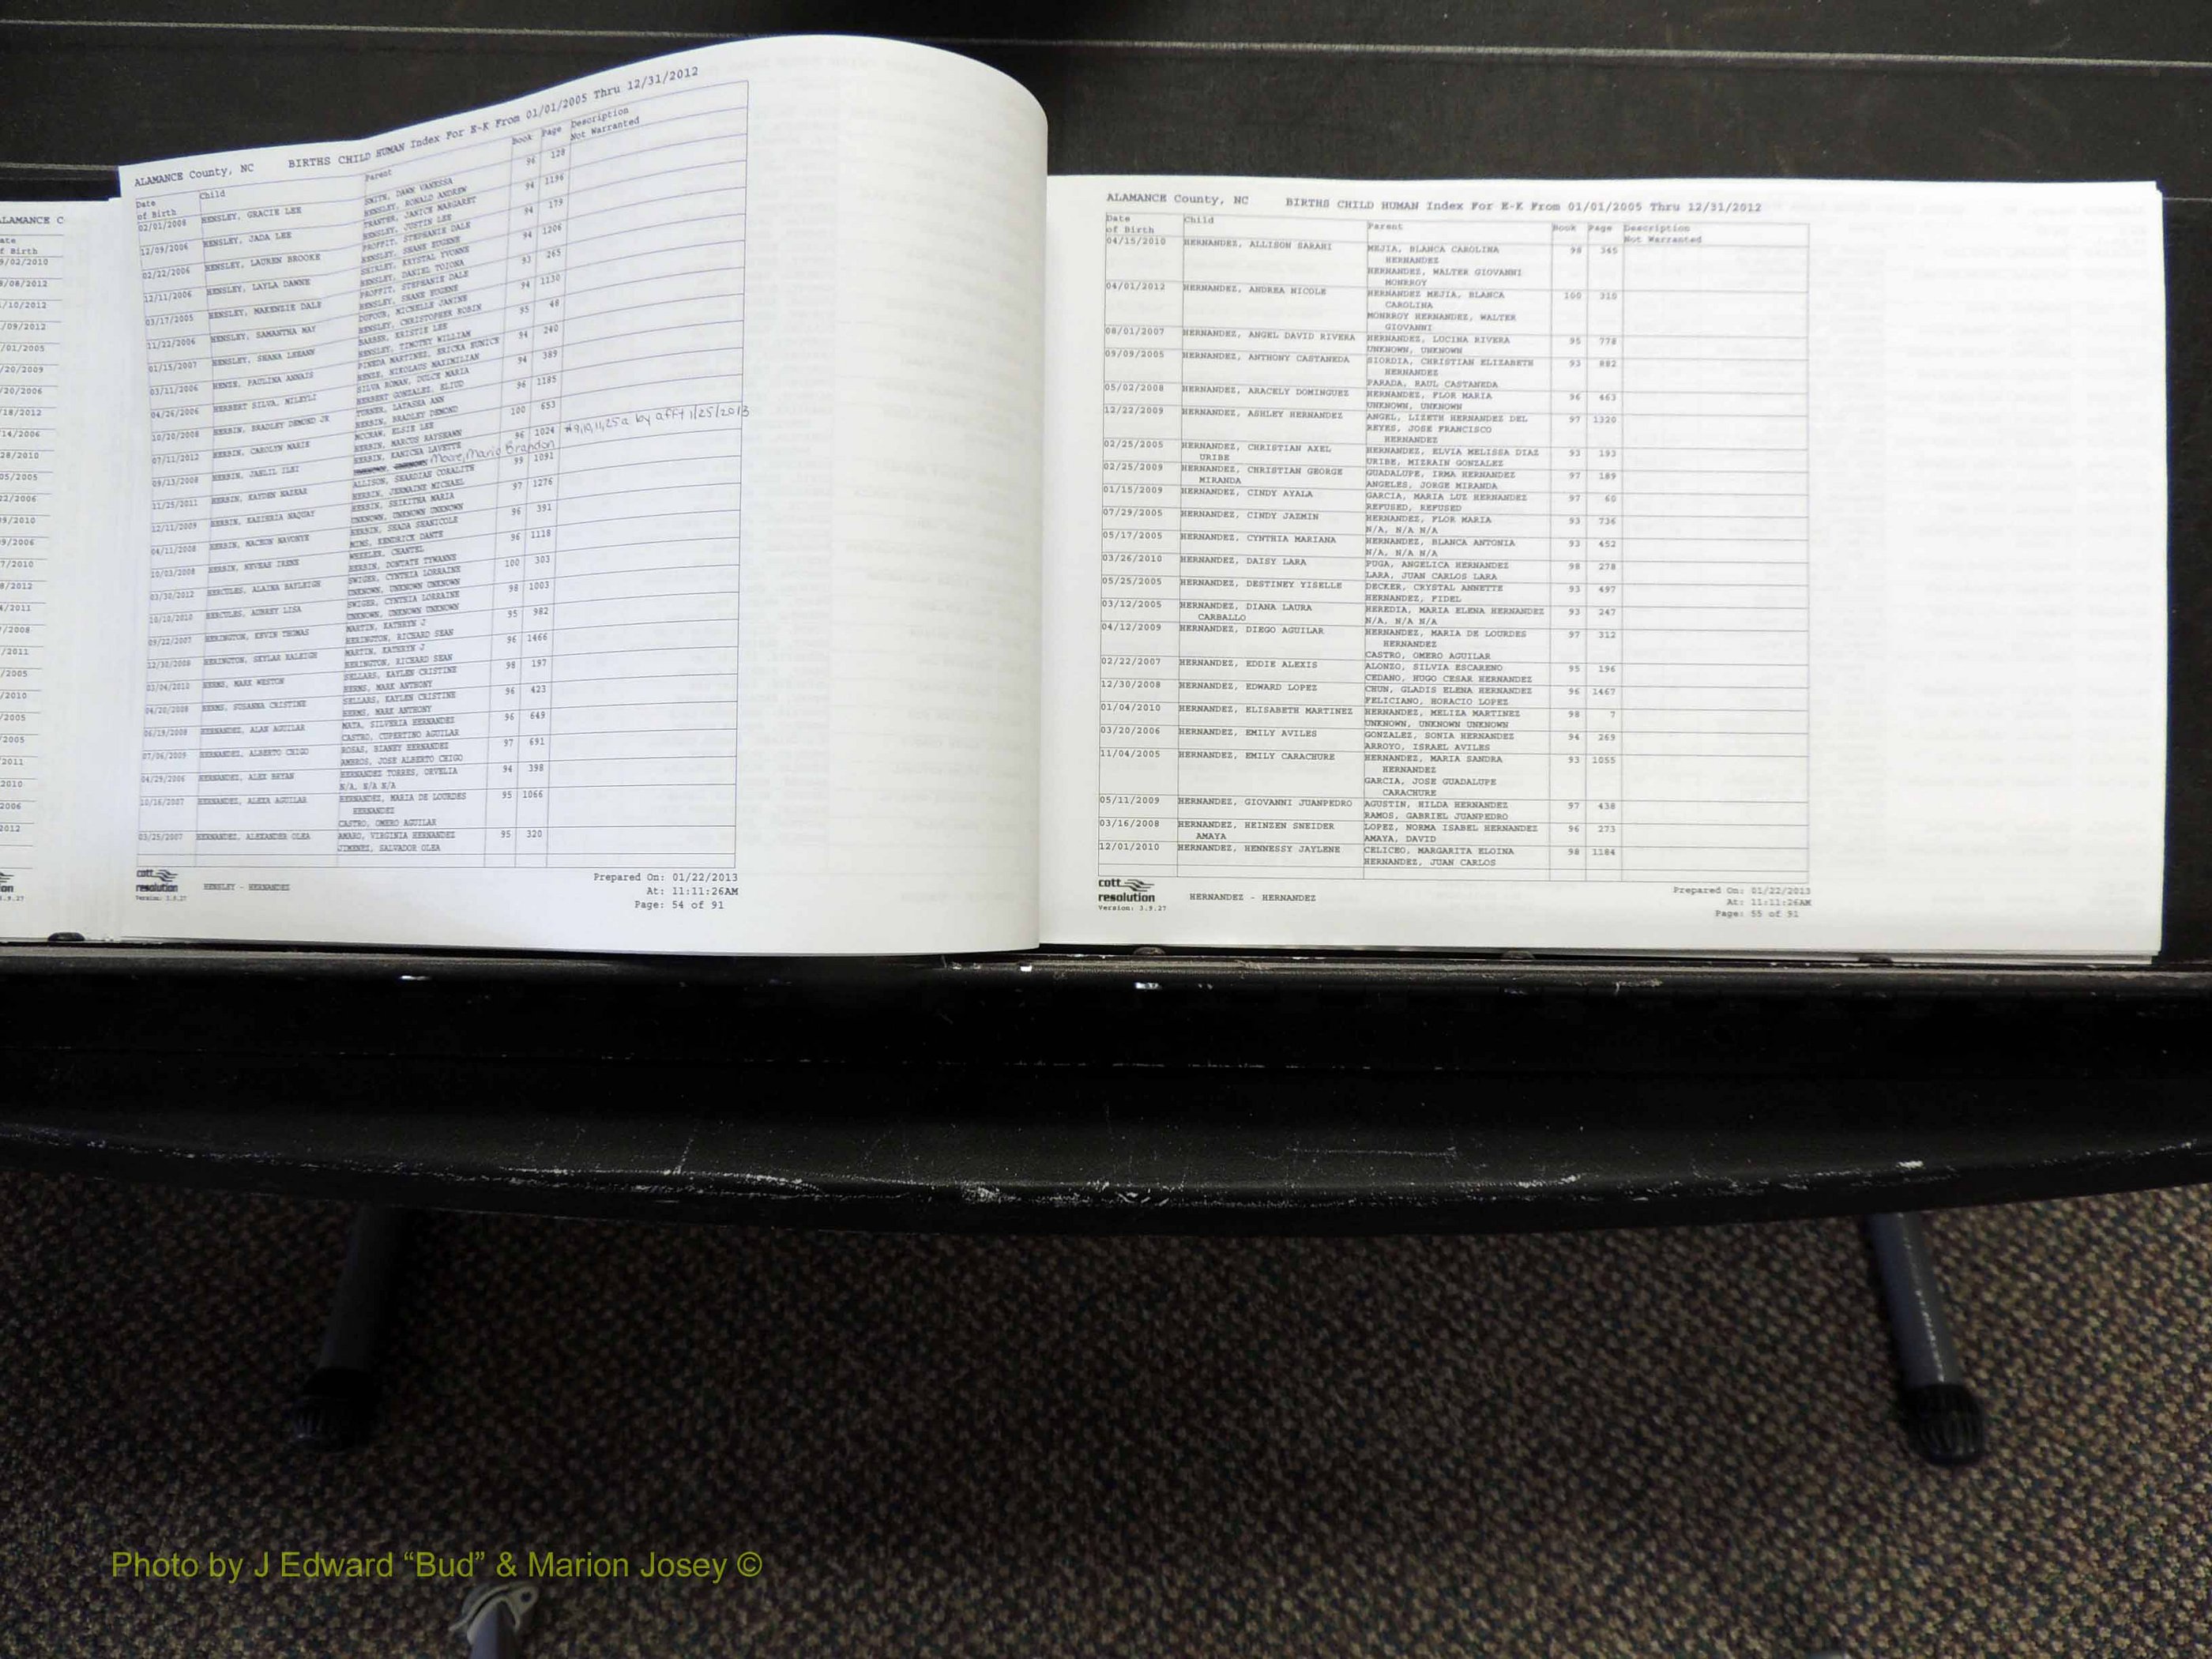 LAMANCE C
ate
f Birth
9/02/2010
8/08/2012
/10/2012
/09/2012
/01/2005
/20/2009
/20/2006
/18/2012
14/2006
28/2010
05/2005
22/2006
9/2010
9/2006
7/2010
8/2012
4/2011
/2008
/2011
/2005
/2010
/2005
/2005
2011
2010
2006
2012
ALAMANCE County, NC BIRTHS CHILD HUMAN Index For E-K From 01/01/2005 Thru 12/31/2012
Date Child Parent Book Page Description
of Birth Not Warranted
02/01/2008 HENSLEY, GRACIE LEE SMITH, DAWN VANESSA 96 128
HENSLEY, RONALD ANDREW
12/09/2006 HENSLEY, JADA LEE TRANTER, JANICE MARGARET 94 1196
HENSLEY, JUSTIN LEE
02/12/2006 HENSLEY, LAUREN BROOKE PROFFIT, STEPHANIE DALE 94 179
HENSLEY, SHANE EUGENE
12/11/2006 HENSLEY, LAYLA DANNE SHIRLEY, KRYSTAL YVONNE 94 1206
HENSLEY, DANIEL
03/17/2005 HENSLEY, MAKENZIE DALE PROFFIT, STEPHANIE DALE 93 265
HENSLEY, SHANE EUGENE
11/22/2006 HENSLEY, SAMANTHA MAY DUFOUR, MICHELLE JANINE 94 1130
HENSLEY, CHRISTOPHER ROBIN
01/15/2007 HENSLEY, SHANA LEEANN BARBER, KRISTIE LEE 95 48
HENSLEY, TIMOTHY WILLIAM
03/11/2006 HENZE, PAULINA ANNAIS PINEDA MARTINEZ, ERICKA EUNICE 94 240
HENZE, NIKOLAUS MAXIMILIAN
04/26/2006 HERBERT SILVA, MILEYLI SILVA ROMAN, DULCE MARIA 94 389
HERBERT GONZALEZ, ELIUD
10/20/2008 HERBIN, BRADLEY DEMOND JR TURNER, LATASHA ANN 96 1185
HERBIN, BRADLEY DEMOND
07/11/2012 HERBIN, CAROLYN MARIE MCCRAW, ELSIE LEE 100 653
HERBIN, MARCUS RAYSHAWN
09/13/2008 HERBIN, JAELIL ILEI HERBIN, KANICHA LAVETTE 96 1024 *9,10,11,25a by afft 1/25/2013
Moore, Mario Brandon
11/25/2011 HERBIN, KAYDEN ALLISON, SHARDIAN CORALITE 99 1091
HERBIN, JERMAINE MICHAEL
12/11/2009 HERBIN, KAZIERIA NAQUAY HERBIN, SHIKITHA MARIA 97 1276
UNKNOWN, UNKNOWN UNKNOWN
04/11/2008 HERBIN, MACEON NAVONTE HERBIN, SHADA SHANICOLE 96 391
MIMS, KENDRICK DANTE
10/03/2008 HERBIN, NEVEAH IRENE WHEELER, CHANTEL 96 1118
HERBIN, DONTATE TYWANNE
03/30/2012 HERCULES, ALAINA RAYLEIGH SWIGER, CYNTHIA LORRAINE 100 303
UNKNOWN, UNKNOWN UNKNOWN
10/10/2010 HERCULES, AUBREY LISA SWIGER, CYNTHIA LORRAINE 98 1003
UNKNOWN, UNKNOWN UNKNOWN
09/22/2007 HERINGTON, KEVIN THOMAS MARTIN, KATHRYN J 95 982
HERINGTON, RICHARD SEAN
12/30/2008 HERINGTON, SKYLAR RALEIGH MARTIN, KATHRYN J 96 1466
HERINGTON, RICHARD SEAN
03/04/2010 HERMS, MARK WESTON SELLARS, KAYLEN CRISTINE 98 197
HERMS, MARK ANTHONY
04/20/2008 HERMS, SUSANNA CRISTINE SELLARS, KAYLEN CRISTINE 96 423
HERMS, MARK ANTHONY
06/19/2008 HERNANDEZ, ALAN AGUILAR MATA, SILVERIA HERNANDEZ 96 649
CASTRO, CUPERTINO AGUILAR
07/06/2009 HERNANDEZ, ALBERTO CHIGO ROSAS, BIANEY HERNANDEZ 97 691
AMBROS, JOSE ALBERTO CHIGO
04/29/2006 HERNANDEZ, ALEX BRYAN HERNANDEZ TORRES, ORVELIA 94 398
N/A, N/A N/A
10/16/2007 HERNANDEZ, ALEXA AGUILAR HERNANDEZ, MARIA DE LOURDES 95 1066
HERNANDEZ
CASTRO, OMERO AGUILAR
03/25/2007 HERNANDEZ, ALEXANDER OLEA AMARO, VIRGINIA HERNANDEZ 95 320
JIMENEZ, SALVADOR OLEA
cott
resolution HENSLEY - HERNANDEZ
Version: 3.9.27
Prepared On: 01/22/2013
At: 11:11:26AM
Page: 54 of 91
ALAMANCE County, NC BIRTHS CHILD HUMAN Index For E-K From 01/01/2005 Thru 12/31/2012
Date Child Parent Book Page Description
of Birth Not Warranted
04/15/2010 HERNANDEZ, ALLISON SARAHI MEJIA, BLANCA CAROLINA 98 345
HERNANDEZ
HERNANDEZ, WALTER GIOVANNI
MONRROY
04/01/2012 HERNANDEZ, ANDREA NICOLE HERNANDEZ MEJIA, BLANCA 100 310
CAROLINA
MONRROY HERNANDEZ, WALTER
GIOVANNI
08/01/2007 HERNANDEZ, ANGEL DAVID RIVERA HERNANDEZ, LUCINA RIVERA 95 778
UNKNOWN, UNKNOWN
09/09/2005 HERNANDEZ, ANTHONY CASTANEDA SIORDIA, CHRISTIAN ELIZABETH 93 882
HERNANDEZ
PARADA, RAUL CASTANEDA
05/02/2008 HERNANDEZ, ARACELY DOMINGUEZ HERNANDEZ, FLOR MARIA 96 463
UNKNOWN, UNKNOWN
12/22/2009 HERNANDEZ, ASHLEY HERNANDEZ ANGEL, LIZETH HERNANDEZ DEL 97 1320
REYES, JOSE FRANCISCO
HERNANDEZ
02/25/2005 HERNANDEZ, CHRISTIAN AXEL HERNANDEZ, ELVIA MELISSA DIAZ 93 193
URIBE URIBE, MIZRAIN GONZALEZ
02/25/2009 HERNANDEZ, CHRISTIAN GEORGE GUADALUPE, IRMA HERNANDEZ 97 189
MIRANDA ANGELES, JORGE MIRANDA
01/15/2009 HERNANDEZ, CINDY AYALA GARCIA, MARIA LUZ HERNANDEZ 97 60
REFUSED, REFUSED
07/29/2005 HERNANDEZ, CINDY JAZMIN HERNANDEZ, FLOR MARIA 93 736
N/A, N/A N/A
05/17/2005 HERNANDEZ, CYNTHIA MARIANA HERNANDEZ, BLANCA ANTONIA 93 452
N/A, N/A N/A
03/26/2010 HERNANDEZ, DAISY LARA PUGA, ANGELICA HERNANDEZ 98 278
LARA, JUAN CARLOS LARA
05/25/2005 HERNANDEZ, DESTINEY YISELLE DECKER, CRYSTAL ANNETTE 93 497
HERNANDEZ, FIDEL
03/12/2005 HERNANDEZ, DIANA LAURA HEREDIA, MARIA ELENA HERNANDEZ 93 247
CARBALLO N/A, N/A N/A
04/12/2009 HERNANDEZ, DIEGO AGUILAR HERNANDEZ, MARIA DE LOURDES 97 312
HERNANDEZ
CASTRO, OMERO AGUILAR
02/22/2007 HERNANDEZ, EDDIE ALEXIS ALONZO, SILVIA ESCARENO 95 196
CEDANO, HUGO CESAR HERNANDEZ
12/30/2008 HERNANDEZ, EDWARD LOPEZ CHUN, GLADIS ELENA HERNANDEZ 96 1467
FELICIANO, HORACIO LOPEZ
01/04/2010 HERNANDEZ, ELISABETH MARTINEZ HERNANDEZ, MELIZA MARTINEZ 98 7
UNKNOWN, UNKNOWN UNKNOWN
03/20/2006 HERNANDEZ, EMILY AVILES GONZALEZ, SONIA HERNANDEZ 94 269
ARROYO, ISRAEL AVILES
11/04/2005 HERNANDEZ, EMILY CARACHURE HERNANDEZ, MARIA SANDRA 93 1055
HERNANDEZ
GARCIA, JOSE GUADALUPE
CARACHURE
05/11/2009 HERNANDEZ, GIOVANNI JUANPEDRO AGUSTIN, HILDA HERNANDEZ 97 438
RAMOS, GABRIEL JUANPEDRO
03/16/2008 HERNANDEZ, HEINZEN SNEIDER LOPEZ, NORMA ISABEL HERNANDEZ 96 273
AMAYA AMAYA, DAVID
12/01/2010 HERNANDEZ, HENNESSY JAYLENE CELICEO, MARGARITA ELOINA 98 1184
HERNANDEZ, JUAN CARLOS
cott
resolution HERNANDEZ - HERNANDEZ
Version: 3.9.27
Prepared On: 01/22/2013
At: 11:11:26AM
Page: 55 of 91
Photo by J Edward “Bud” & Marion Josey ©